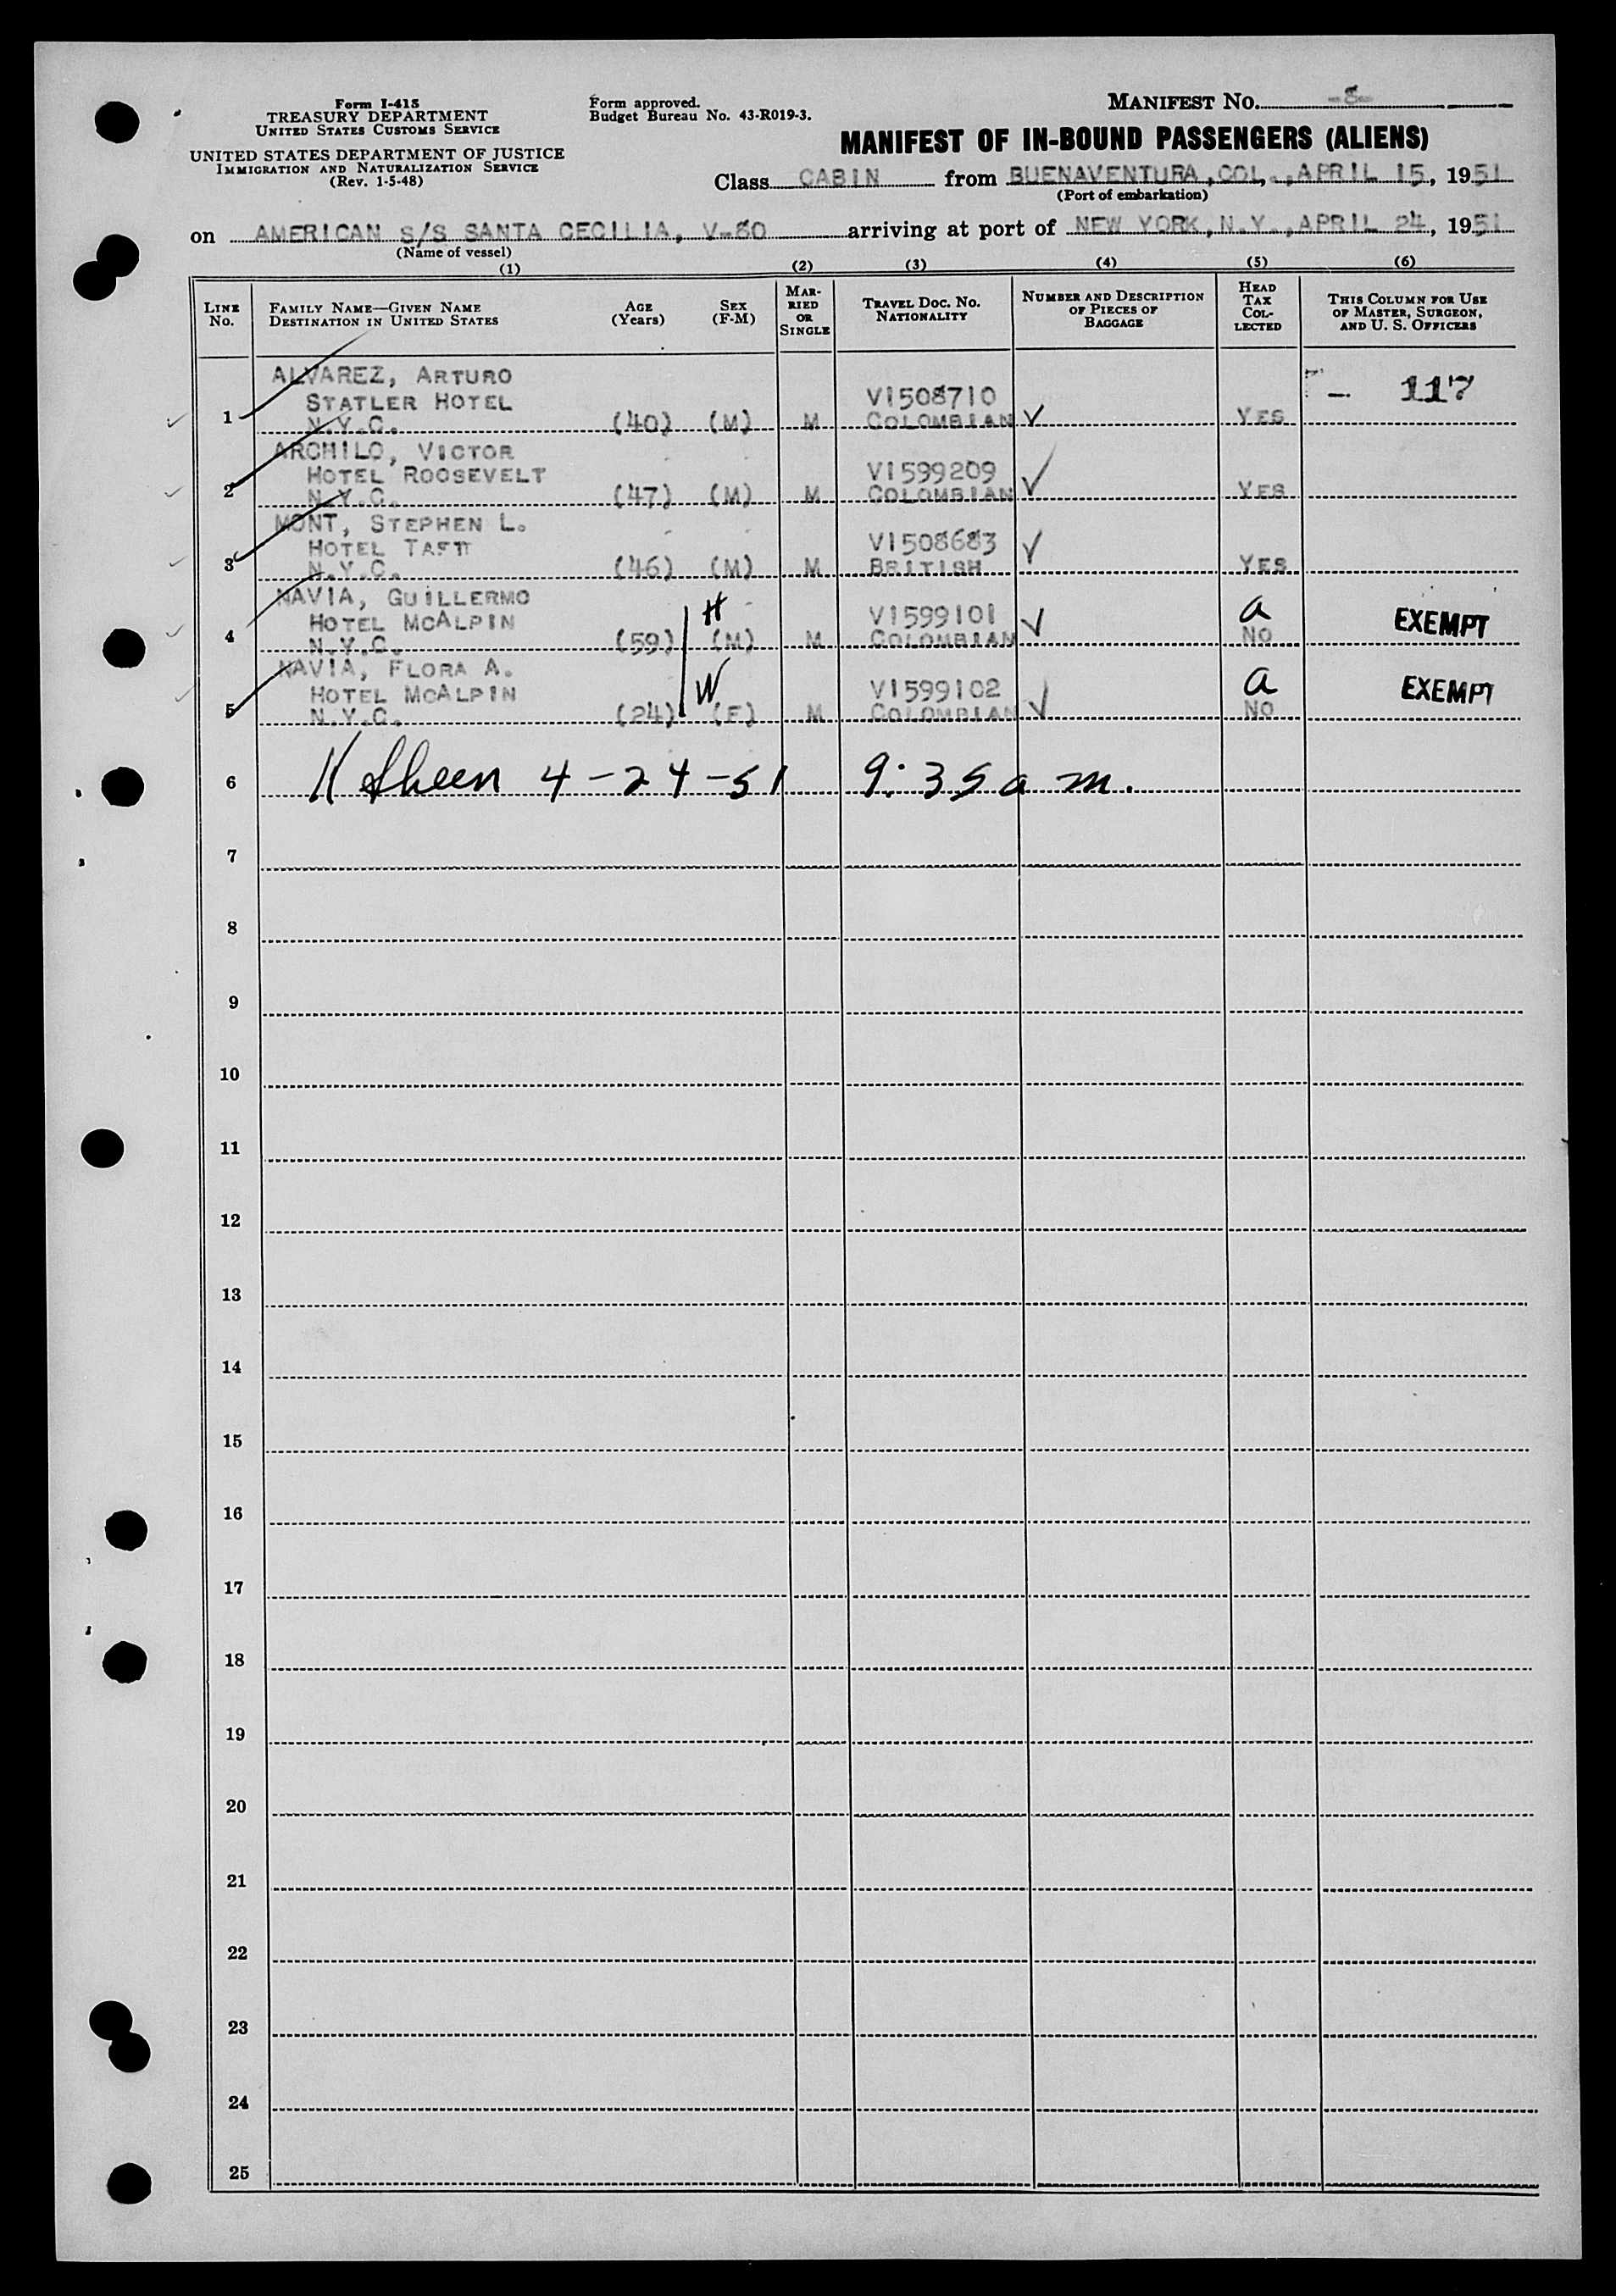 Form I-415
TREASURY DEPARTMENT
UNITED STATES CUSTOMS SERVICE
UNITED STATES DEPARTMENT OF JUSTICE
IMMIGRATION AND NATURALIZATION SERVICE
(Rev. 1-5-48)
Form approved.
Budget Bureau No. 43-R019-3.
MANIFEST No. -8-
MANIFEST OF IN-BOUND PASSENGERS (ALIENS)
Class CABIN from BUENAVENTURA, COL., APRIL 15, 1951
(Port of embarkation)
on AMERICAN S/S SANTA CECILIA, V-80 arriving at port of NEW YORK, N.Y., APRIL 24, 1951
(Name of vessel)
(1) (2) (3) (4) (5) (6)
LINE No.
FAMILY NAME—GIVEN NAME
DESTINATION IN UNITED STATES
AGE (Years)
SEX (F-M)
MARRIED OR SINGLE
TRAVEL DOC. NO.
NATIONALITY
NUMBER AND DESCRIPTION OF PIECES OF BAGGAGE
HEAD TAX COLLECTED
THIS COLUMN FOR USE OF MASTER, SURGEON, AND U. S. OFFICERS
ALVAREZ, ARTURO
STATLER HOTEL V1508710 — 117
1 N.Y.C. (40) (M) M COLOMBIAN √ YES
ARCHILO, VICTOR
HOTEL ROOSEVELT V1599209
2 N.Y.C. (47) (M) M COLOMBIAN √ YES
MONT, STEPHEN L.
HOTEL TAFT V1508683
3 N.Y.C. (46) (M) M BRITISH √ YES
NAVIA, GUILLERMO H
HOTEL MCALPIN V1599101 a EXEMPT
4 N.Y.C. (59) (M) M COLOMBIAN √ NO
NAVIA, FLORA A. W
HOTEL MCALPIN V1599102 a EXEMPT
5 N.Y.C. (24) (F) M COLOMBIAN √ NO
6 Sheen 4-24-51 9:35 a m.
7
8
9
10
11
12
13
14
15
16
17
18
19
20
21
22
23
24
25